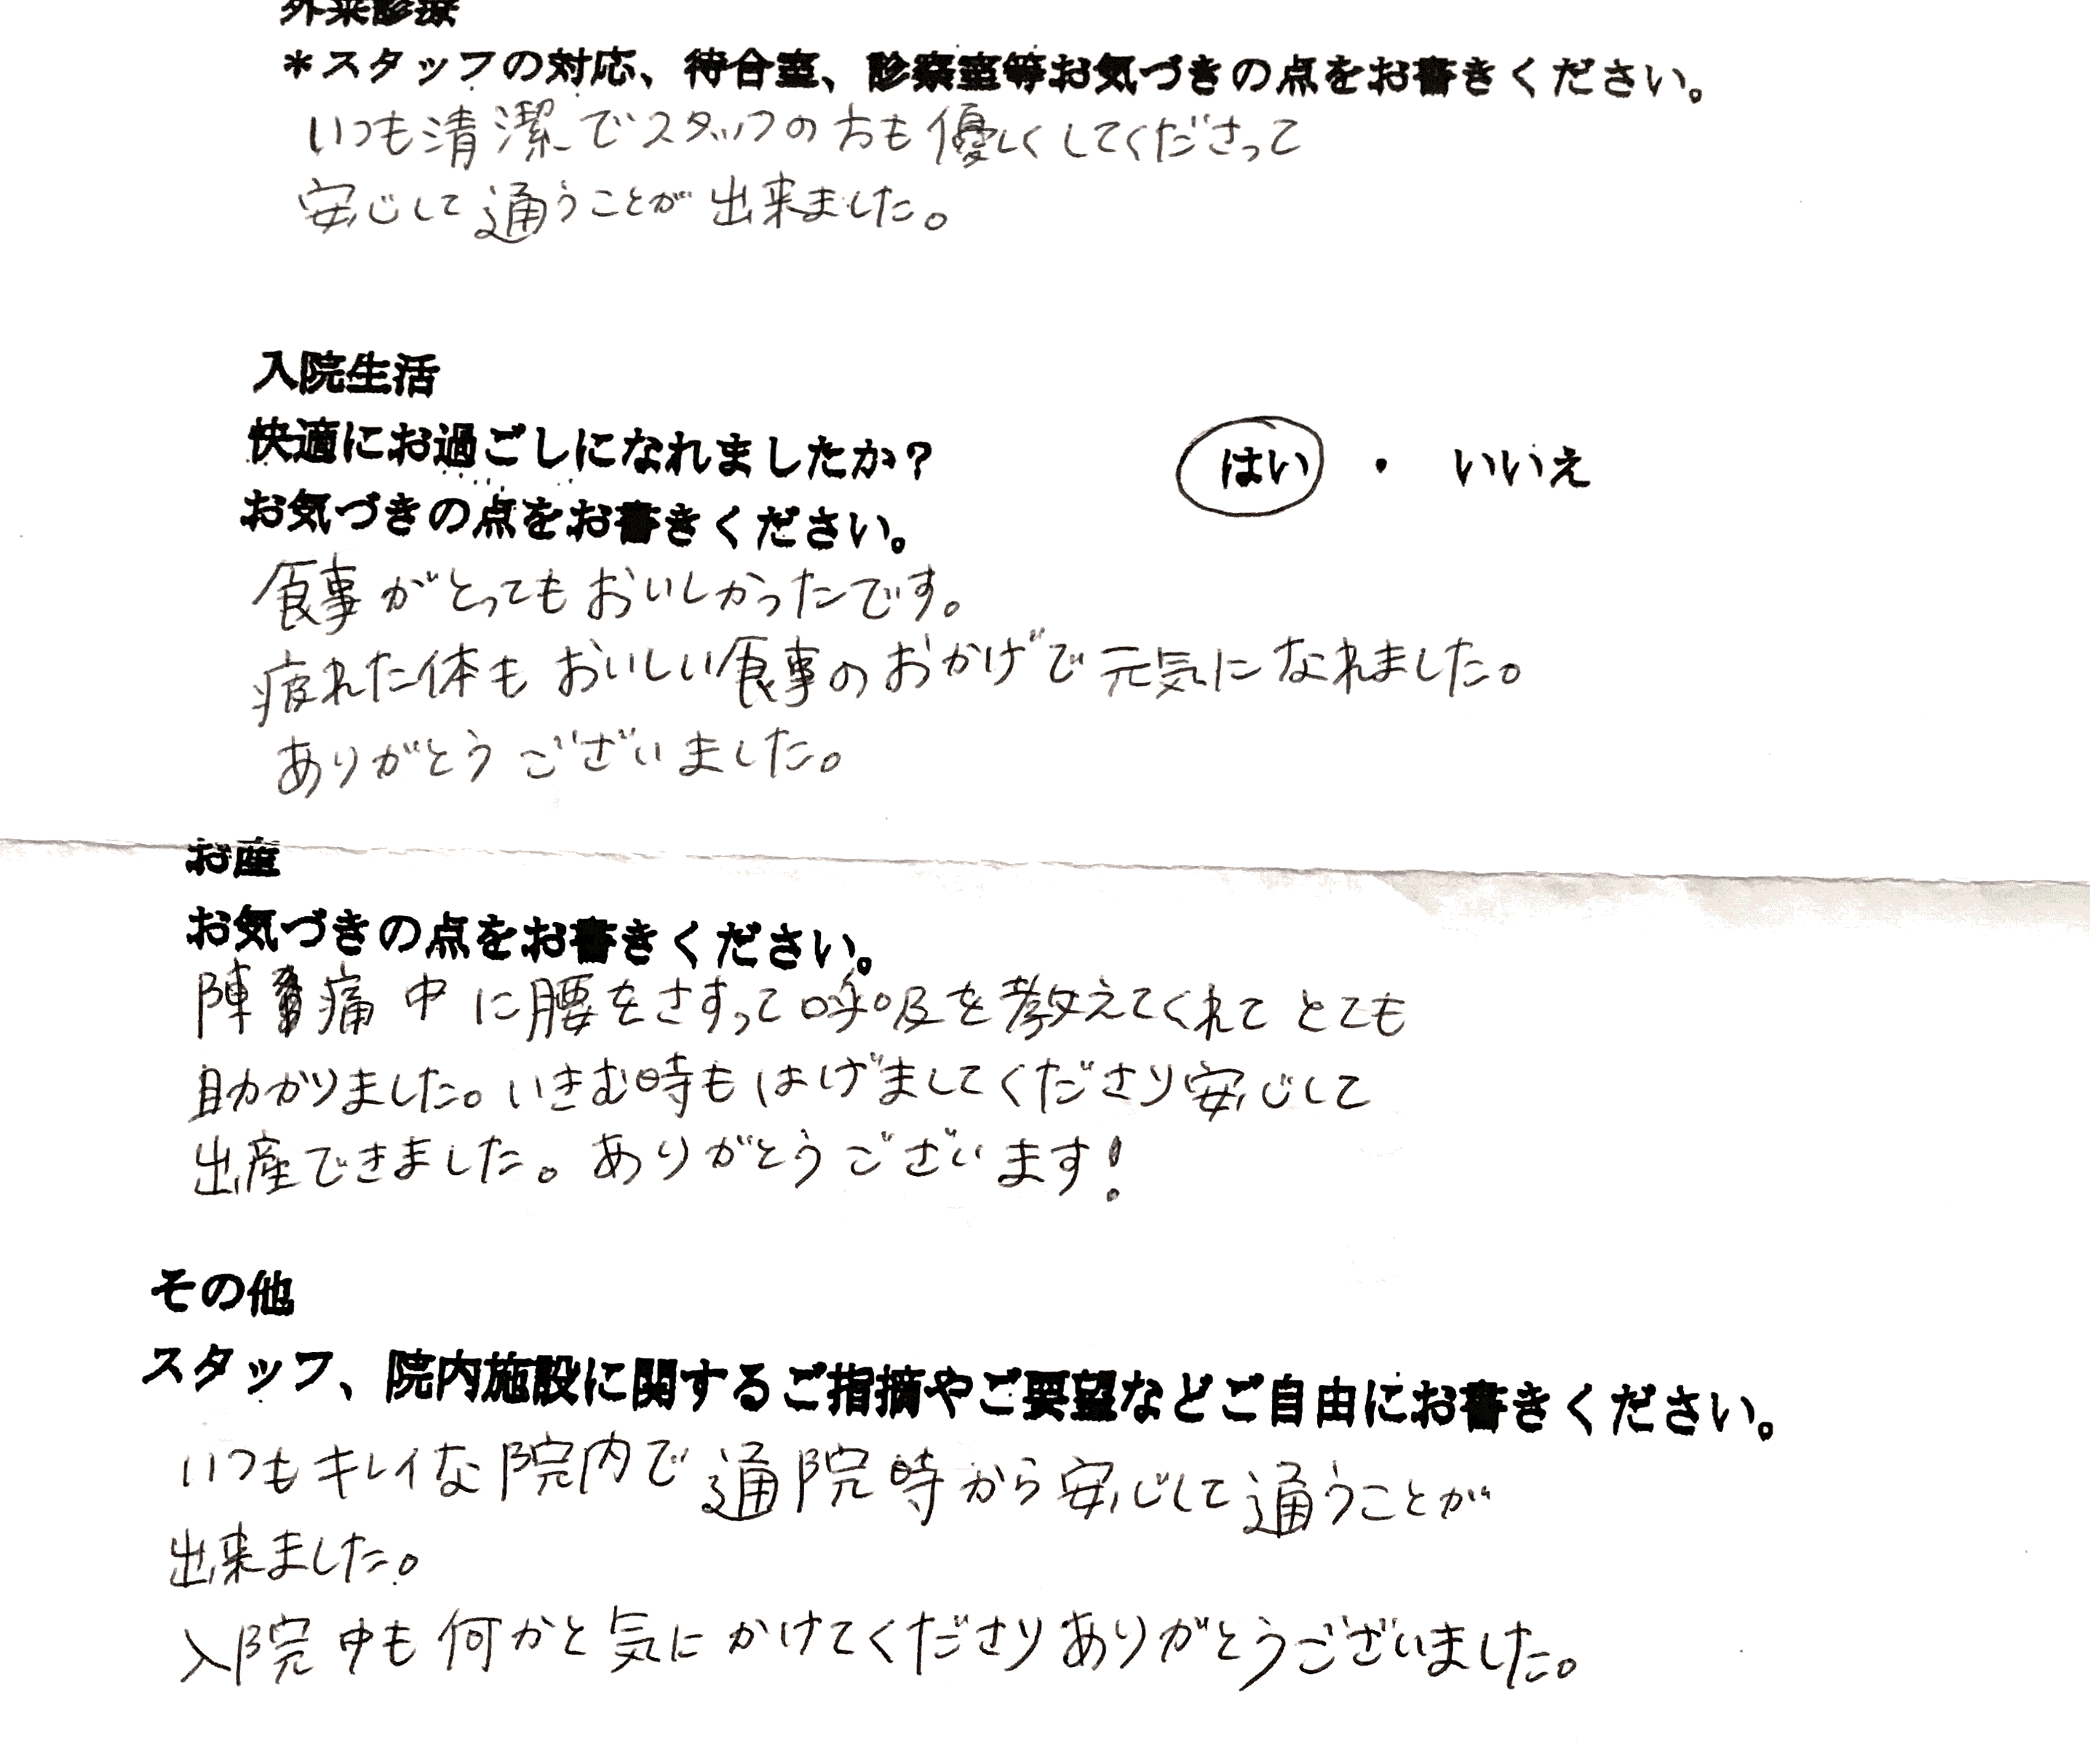 外来診療
*スタッフの対応、待合室、診察室等お気づきの点をお書きください。
いつも清潔でスタッフの方も優しくしてくださって
安心して通うことが出来ました。
入院生活
快適にお過ごしになれましたか? はい ・ いいえ
お気づきの点をお書きください。
食事がとってもおいしかったです。
疲れた体もおいしい食事のおかげで元気になれました。
ありがとうございました。
お産
お気づきの点をお書きください。
陣痛中に腰をさすって呼吸を教えてくれてとても
助かりました。いきむ時もはげましてくださり安心して
出産できました。ありがとうございます!
その他
スタッフ、院内施設に関するご指摘やご要望などご自由にお書きください。
いつもキレイな院内で通院時から安心して通うことが
出来ました。
入院中も何かと気にかけてくださりありがとうございました。